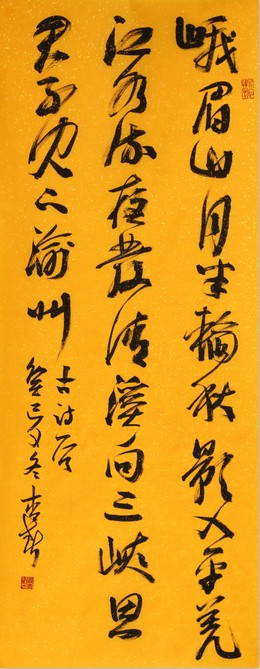 峨眉山月半輪秋影入平羌
江水流夜發清溪向三峽思
君不見下渝州
古诗
癸巳冬